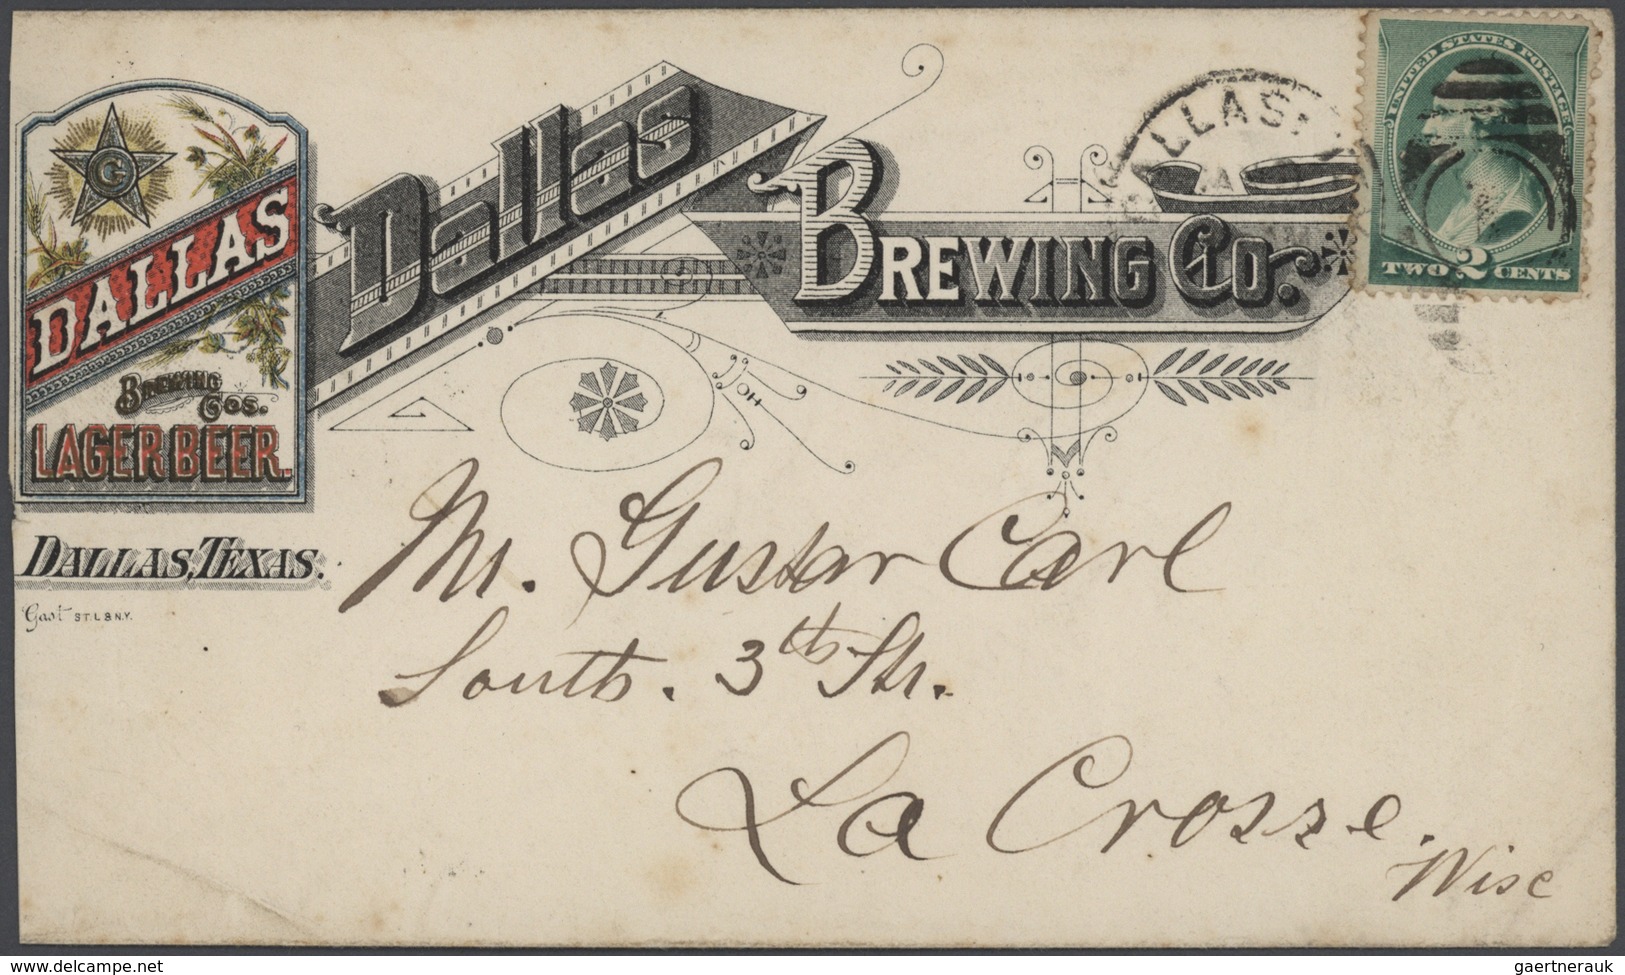 G
DALLAS
BREWING
COS.
LAGER BEER.
Dallas
BREWING CO.
DALLAS, TEXAS.
Gast ST.L & N.Y.
DALLAS,
UNITED STATES POSTAGE
TWO 2 CENTS
Mr. Gustav Carl
South. 3th Str.
La Crosse.
Wisc
delcampe.net
gaertnerauk